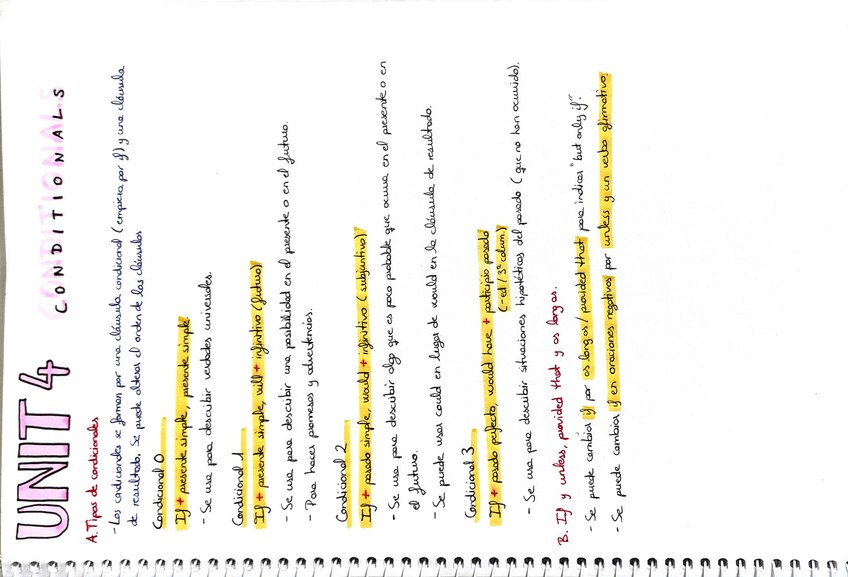 UNIT 4
CONDITIONALS
A. Tipos de condicionales
- Los condicionales se forman por una cláusula condicional (empieza por if) y una cláusula
de resultado. Se puede alterar el orden de las cláusulas
Condicional 0
If + presente simple, presente simple.
- Se usa para describir verdades universales.
Condicional 1
If + presente simple, will + infinitivo (futuro)
- Se usa para describir una posibilidad en el presente o en el futuro.
- Para hacer promesas y advertencias.
Condicional 2
If + pasado simple, would + infinitivo (subjuntivo)
- Se usa para describir algo que es poco probable que ocurra en el presente o en
el futuro.
- Se puede usar could en lugar de would en la cláusula de resultado.
Condicional 3
If + pasado perfecto, would have + participio pasado
(-ed / 3ª colum.)
- Se usa para describir situaciones hipotéticas del pasado (que no han ocurrido).
B. If y unless, provided that y as long as.
- Se puede cambiar if por as long as / provided that para indicar "but only if".
- Se puede cambiar if en oraciones negativas por unless y un verbo afirmativo.